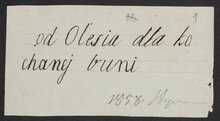 1
od Olesia dla ko
chanej buni
1858.